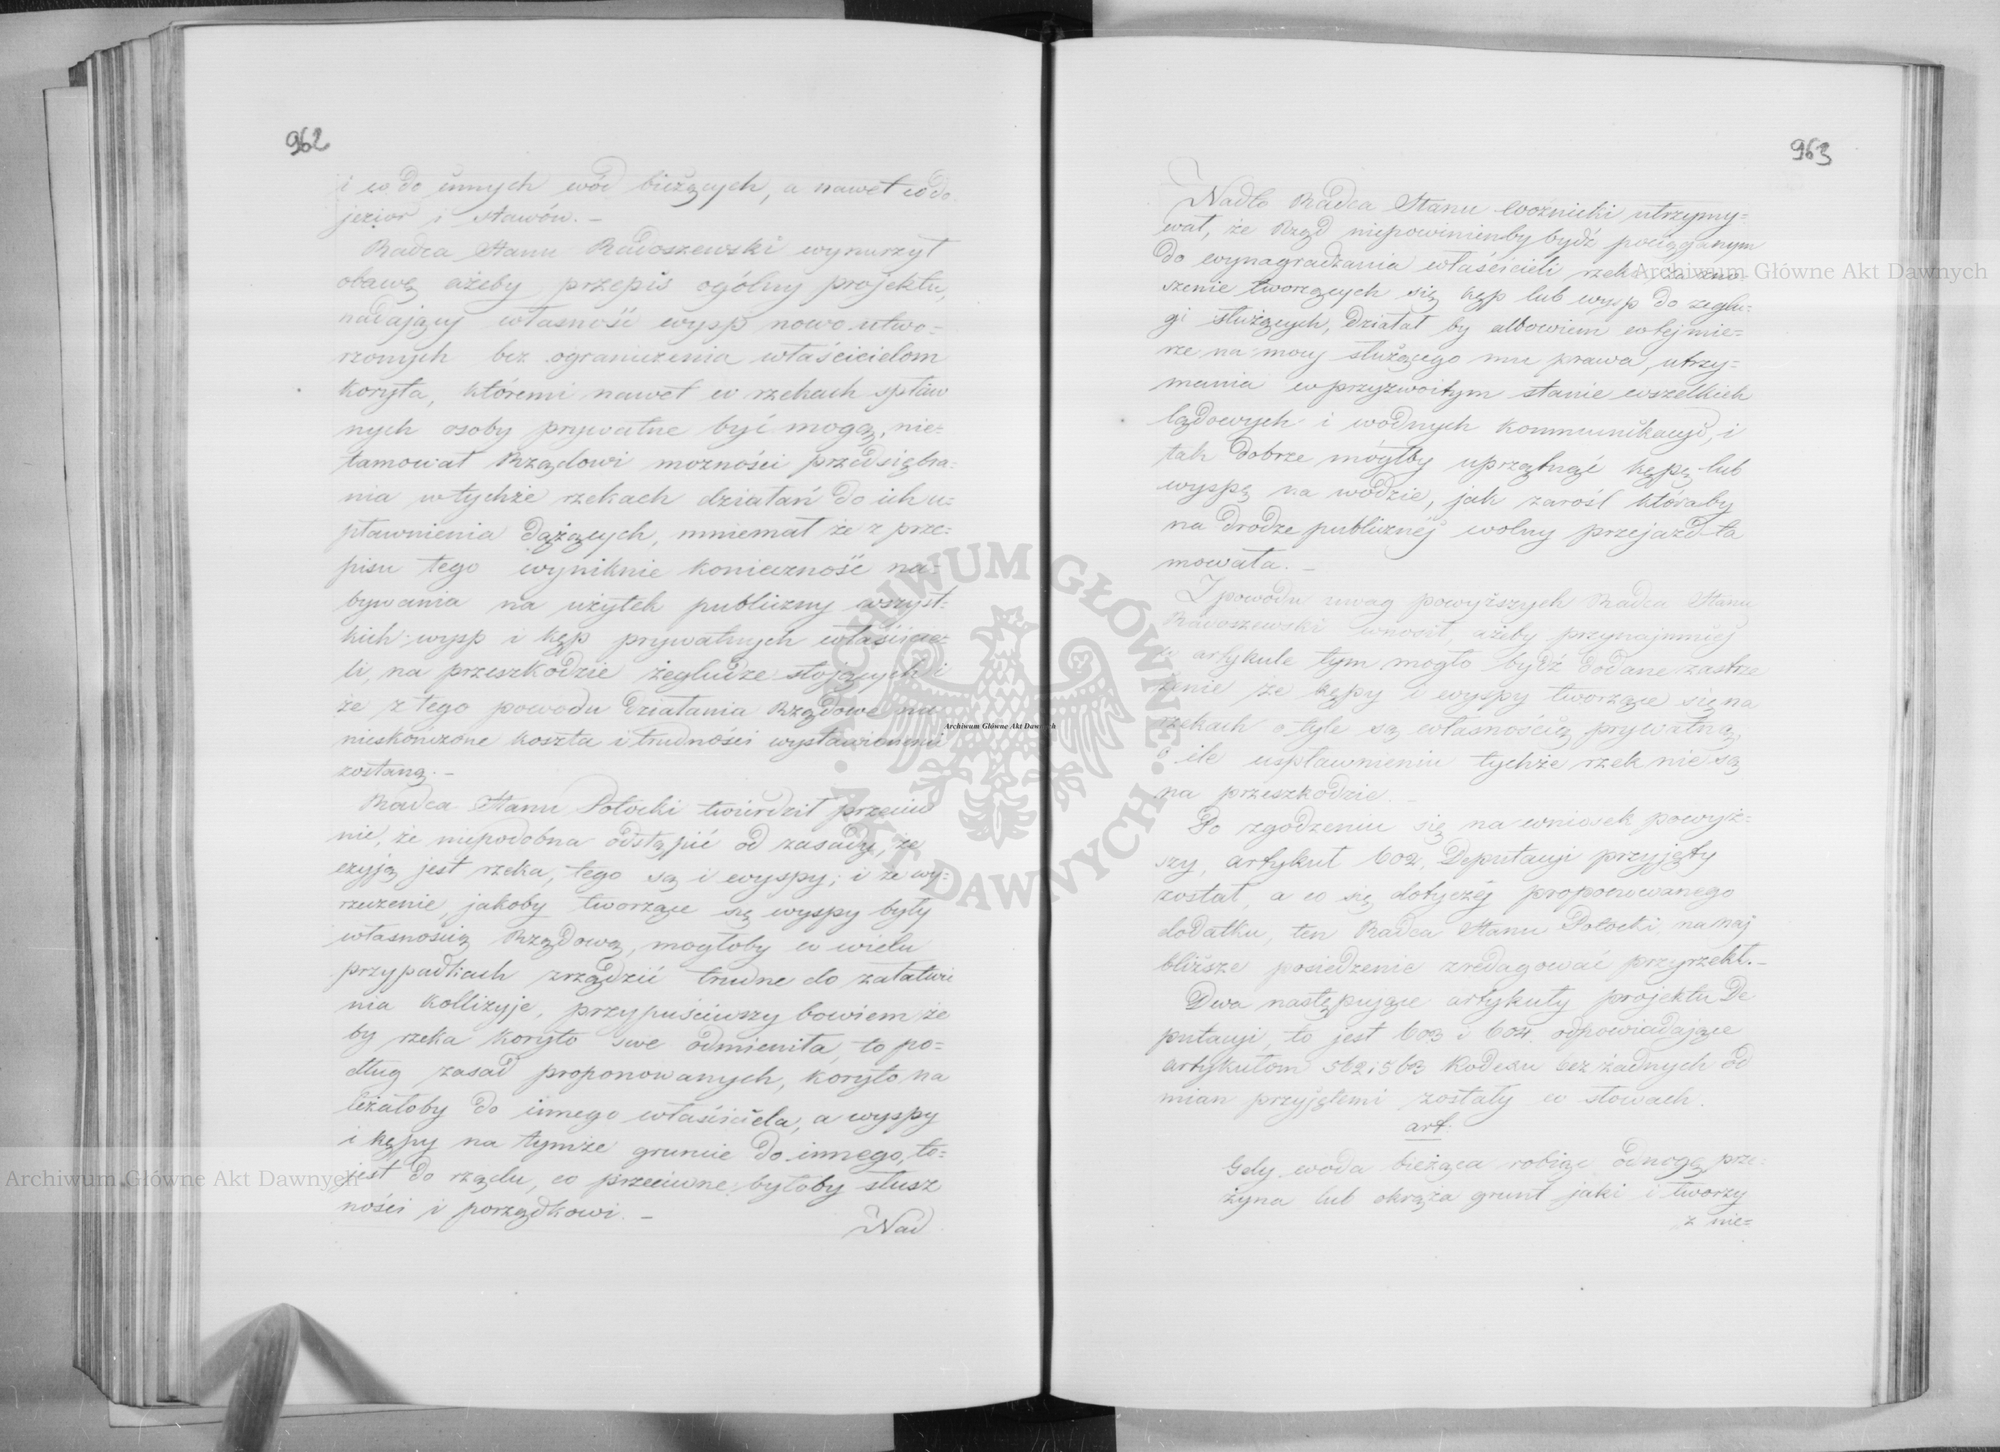 962
i co do innych wód bieżących, a nawet co do
jezior i stawów. –
Radca Stanu Radoszewski wynurzył
obawę ażeby przepis ogólny projektu,
nadający własność wysp nowo utwo=
rzonych bez ograniczenia właścicielom
koryta, któremi nawet w rzekach spław
nych osoby prywatne być mogą, nie=
tamował Rządowi możności przedsiębra=
nia w tychże rzekach działań do ich u=
pławnienia dążących, mniemał że z prze=
pisu tego wyniknie konieczność na=
bywania na użytek publiczny wszyst=
kich wysp i kęp prywatnych właścicie=
li, na przeszkodzie żegludze stojących i
że z tego powodu działania Rządowe na
nieskończone koszta i trudności wystawionemi
zostaną. –
Radca Stanu Potocki twierdził przeciw
nie, że niepodobna odstąpić od zasady, że
czyją jest rzeka, tego są i wyspy; i że wy=
rzeczenie, jakoby tworzące się wyspy były
własnością Rządową, mogłoby w wielu
przypadkach zrządzić trudne do załatwie
nia kollizyje, przypuściwszy bowiem że
by rzeka koryto swe odmieniła, to po=
dług zasad proponowanych, koryto na
leżałoby do innego właściciela, a wyspy
i kępy na tymże gruncie do innego, to=
jest do rządu, co przeciwne byłoby słusz
ności i porządkowi. –
Nad
963
Nadto Radca Stanu Woźnicki utrzymy=
wał, że Rząd niepowinienby bydź pociąganym
do wynagradzania właścicieli rzek, za zno=
szenie tworzących się kęp lub wysp do żeglu=
gi służących, działał by albowiem w tej mie=
rze na mocy służącego mu prawa, utrzy=
mania w przyzwoitym stanie wszelkich
lądowych i wodnych kommunikacyi, i
tak dobrze mógłby uprzątnąć kępę lub
wyspę na wodzie, jak zarośl któraby
na drodze publicznéj wolny przejazd ta
mowała. –
Z powodu uwag powyższych Radca Stanu
Radoszewski wnosił, ażeby przynajmniéj
w artykule tym mogło bydź dodane zastrze
żenie że kępy i wyspy tworzące się na
rzekach o tyle są własnością prywatną,
o ile uspławnieniu tychże rzek nie są
na przeszkodzie. –
Po zgodzeniu się na wniosek powyż=
szy, artykuł 602. Deputacyi przyjęty
został, a co się dotyczéj proponowanego
dodatku, ten Radca Stanu Potocki na naj
bliższe posiedzenie zredagować przyrzekł. –
Dwa następujące artykuły projektu De
putacyi, to jest 603 i 604. odpowiadające
artykułom 562 i 563 Kodexu bez żadnych od
mian przyjętemi zostały w słowach.
art:
Gdy woda bieżąca robiąc odnogę prze=
żyna lub okrąża grunt jaki i tworzy
z nie=
Archiwum Główne Akt Dawnych
Archiwum Główne Akt Dawnych
Archiwum Główne Akt Dawnych
ARCHIWUM GŁÓWNE · AKT DAWNYCH ·